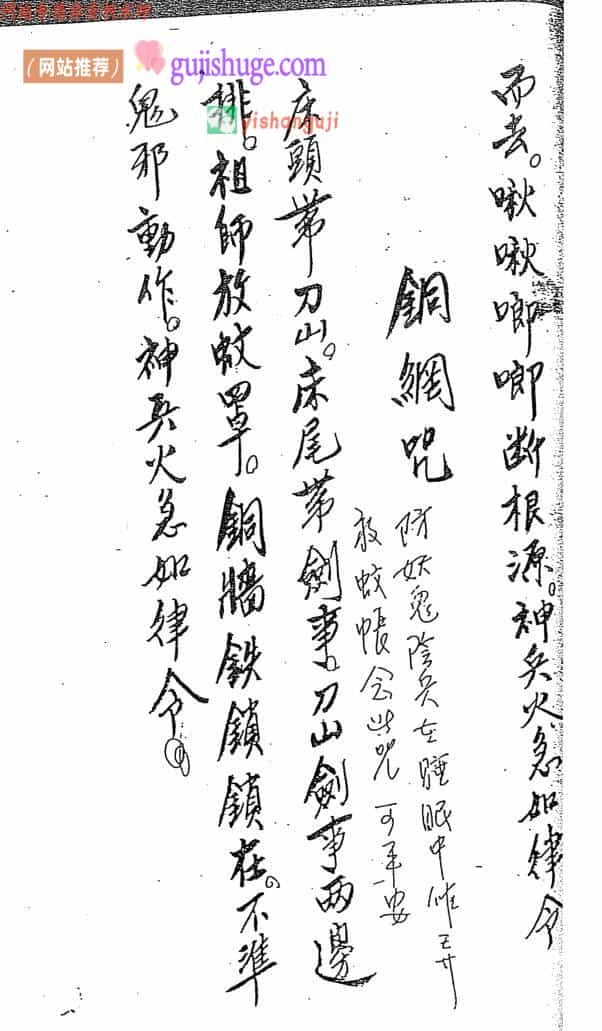 （网站推荐） gujishuge.com
yishanguji
而去。啾啾唧唧断根源。神兵火急如律令
銅網咒
防妖鬼陰兵在睡眠中作弄
放蚊帳念此咒可平安
床頭帶刀山。床尾帶劍事。刀山劍事两邊
排。祖師放蚊罩。銅牆鉄鎖鎖在。不準
鬼邪動作。神兵火急如律令。